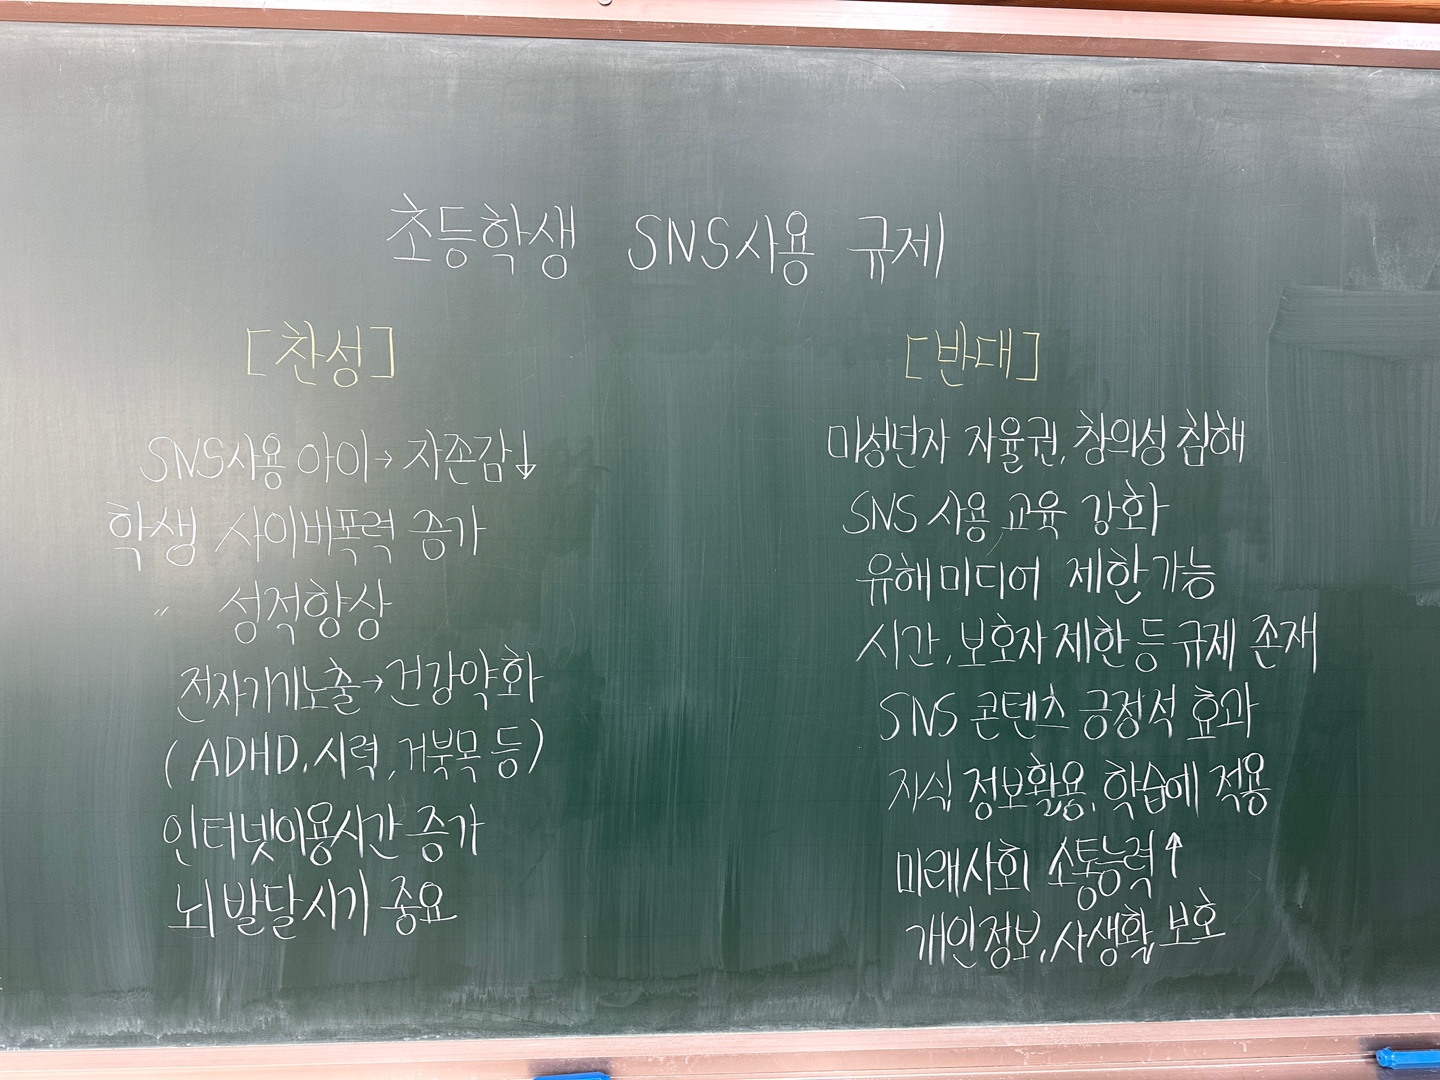 초등학생 SNS사용 규제
[찬성]
SNS사용 아이→ 자존감↓
학생 사이버폭력 증가
〃 성적향상
전자기기노출→건강약화
(ADHD, 시력, 거북목 등)
인터넷이용시간 증가
뇌발달시기 중요
[반대]
미성년자 자율권, 창의성 침해
SNS 사용 교육 강화
유해미디어 제한가능
시간, 보호자 제한 등 규제 존재
SNS 콘텐츠 긍정적 효과
지식, 정보활용, 학습에 적용
미래사회 소통능력↑
개인정보, 사생활 보호